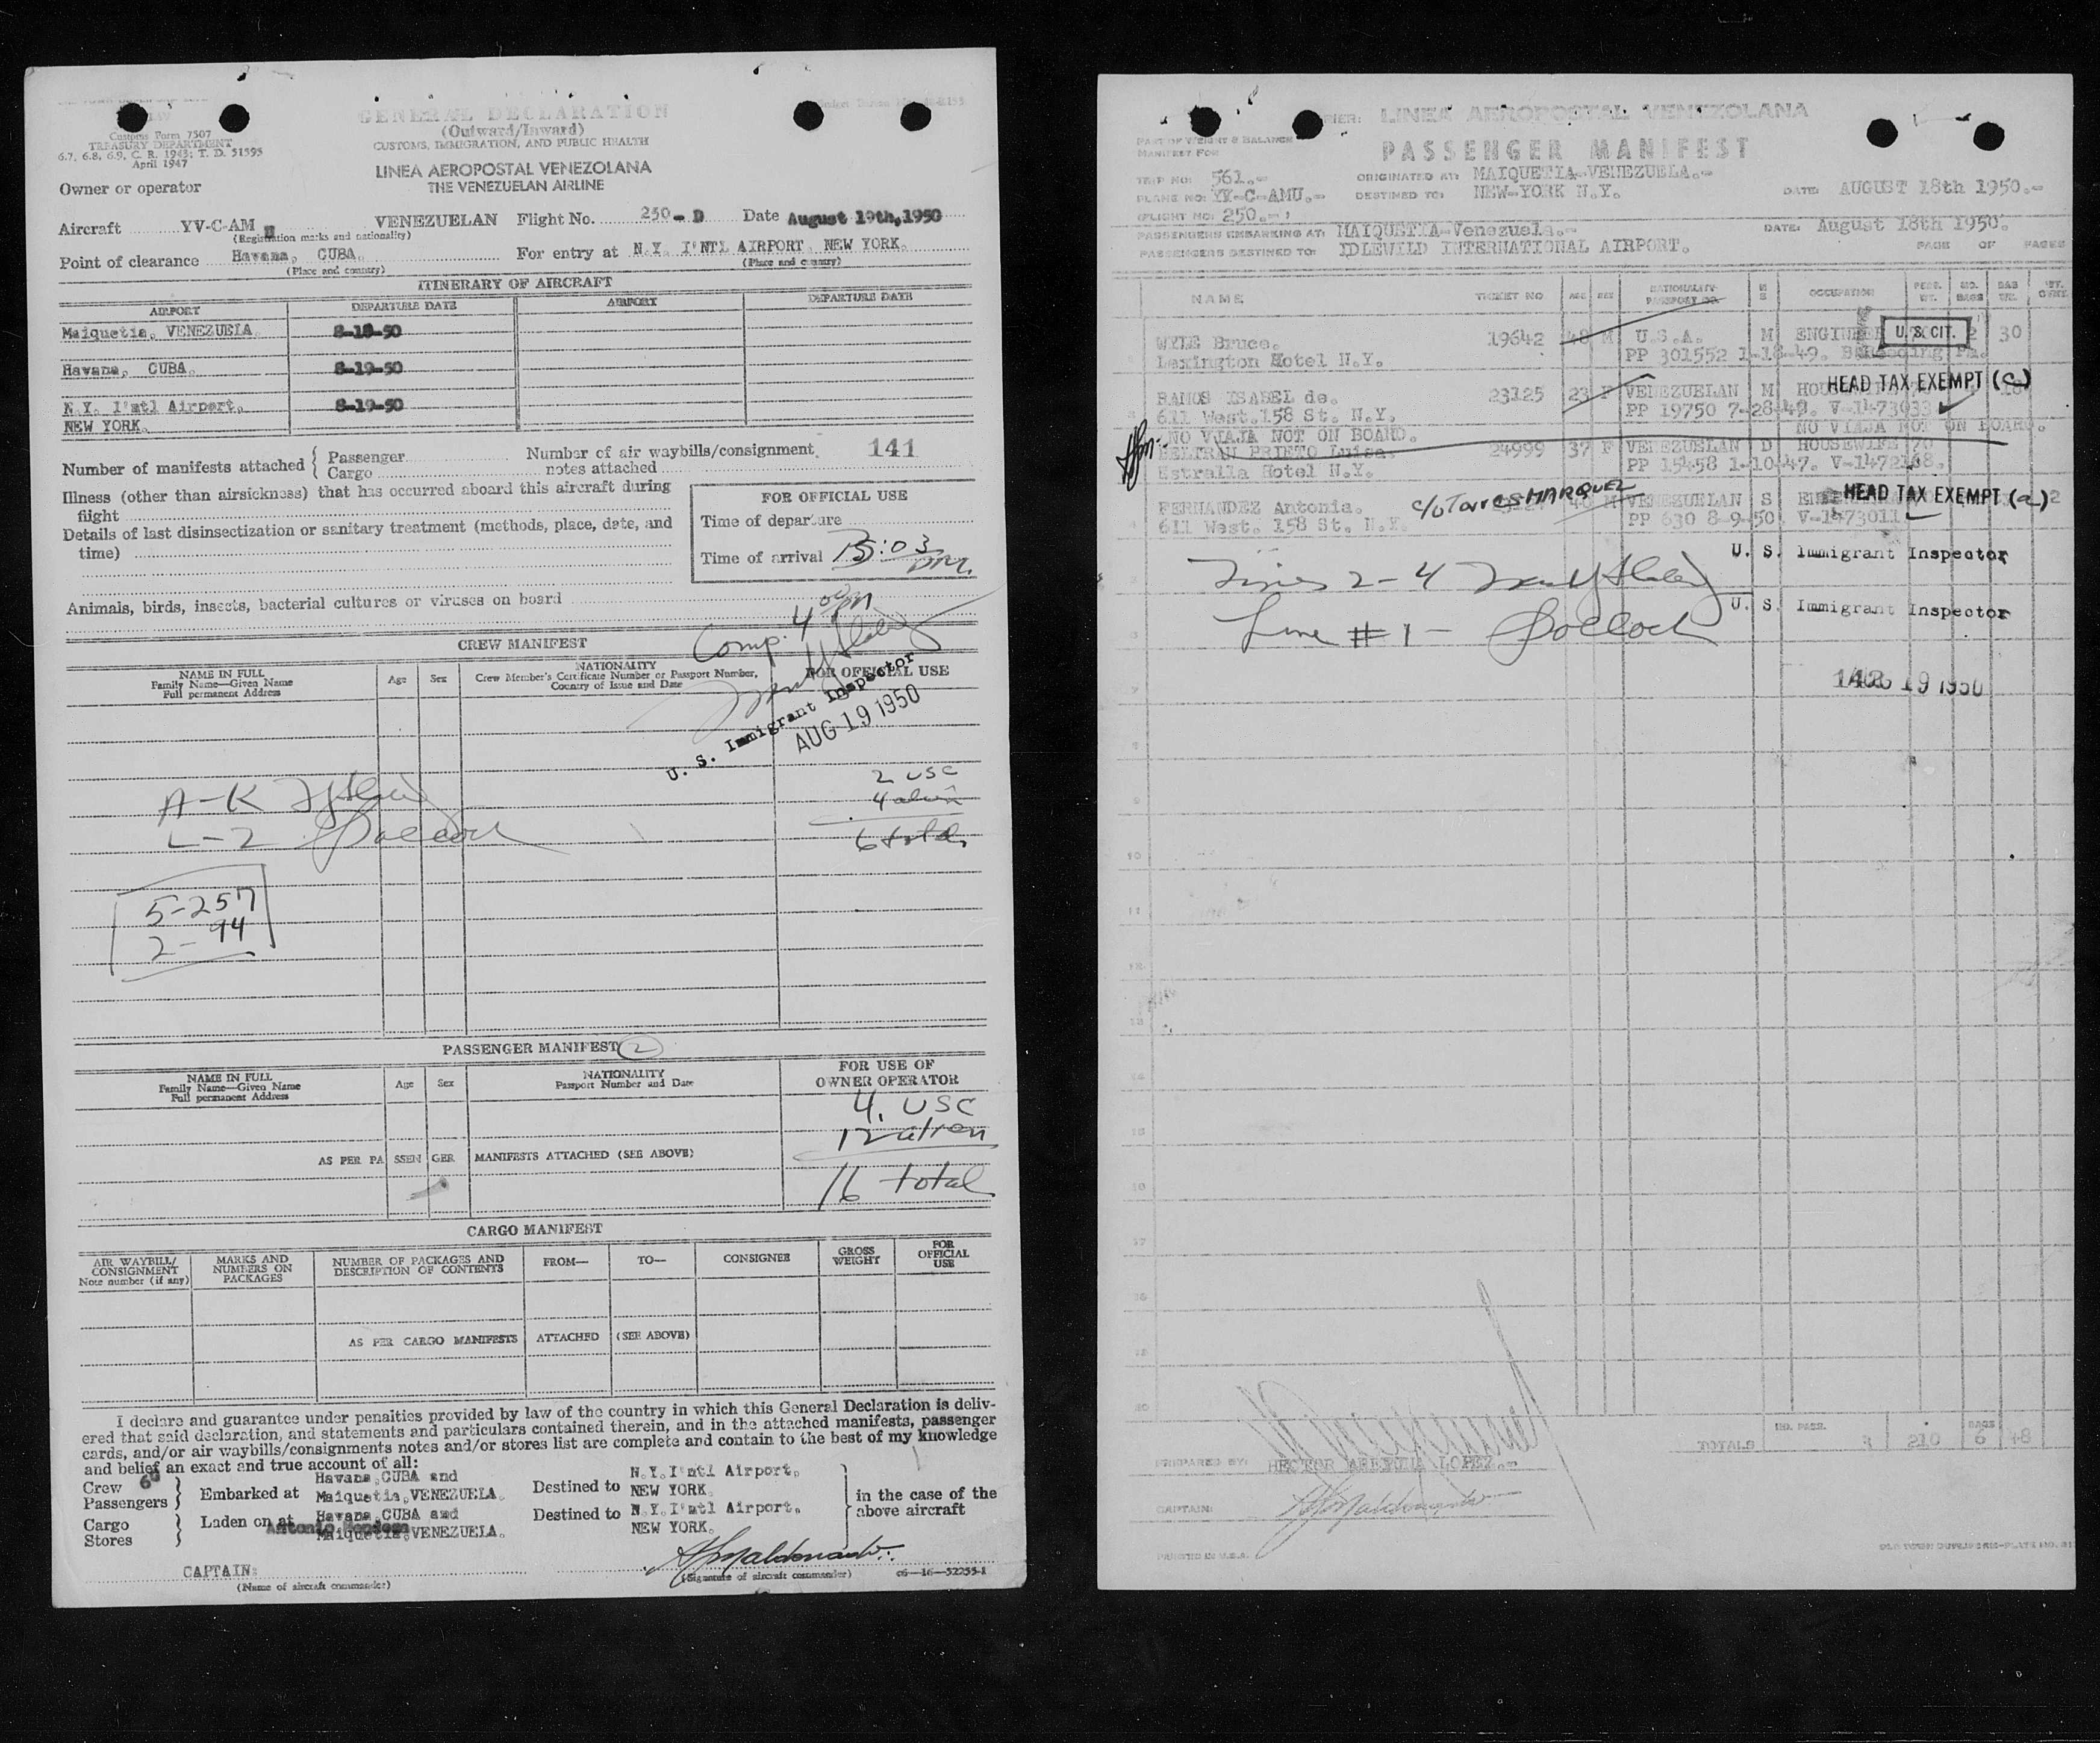 Customs Form 7507
TREASURY DEPARTMENT
6.7, 6.8, 6.9, C. R. 1943; T. D. 51595
April 1947
GENERAL DECLARATION
(Outward/Inward)
CUSTOMS, IMMIGRATION, AND PUBLIC HEALTH
LINEA AEROPOSTAL VENEZOLANA
THE VENEZUELAN AIRLINE
Owner or operator
Aircraft YV-C-AM VENEZUELAN Flight No. 250-D Date August 19th, 1950
(Registration marks and nationality)
Point of clearance Havana, CUBA. For entry at N.Y. I'NTL AIRPORT, NEW YORK.
(Place and country) (Place and country)
ITINERARY OF AIRCRAFT
AIRPORT DEPARTURE DATE AIRPORT DEPARTURE DATE
Maiquetia, VENEZUELA. 8-18-50
Havana, CUBA. 8-19-50
N.Y. I'ntl Airport, 8-19-50
NEW YORK.
Number of manifests attached { Passenger Number of air waybills/consignment 141
Cargo notes attached
Illness (other than airsickness) that has occurred aboard this aircraft during
flight
Details of last disinsectization or sanitary treatment (methods, place, date, and
time)
FOR OFFICIAL USE
Time of departure
Time of arrival 15:03 PM.
Animals, birds, insects, bacterial cultures or viruses on board
Comp. 4 00 PM
CREW MANIFEST
NAME IN FULL
Family Name—Given Name
Full permanent Address
Age Sex
NATIONALITY
Crew Member's Certificate Number or Passport Number,
Country of Issue and Date
FOR OFFICIAL USE
U. S. Immigrant Inspector
AUG 19 1950
2 USC
4 alien
6 total
A-K
L-Z
5-257
2-94
PASSENGER MANIFEST 2
NAME IN FULL
Family Name—Given Name
Full permanent Address
Age Sex
NATIONALITY
Passport Number and Date
FOR USE OF
OWNER OPERATOR
4. USC
12 alien
16 total
AS PER PASSENGER MANIFESTS ATTACHED (SEE ABOVE)
CARGO MANIFEST
AIR WAYBILL/
CONSIGNMENT
Note number (if any)
MARKS AND
NUMBERS ON
PACKAGES
NUMBER OF PACKAGES AND
DESCRIPTION OF CONTENTS
FROM— TO— CONSIGNEE
GROSS
WEIGHT
FOR
OFFICIAL
USE
AS PER CARGO MANIFESTS ATTACHED (SEE ABOVE)
I declare and guarantee under penalties provided by law of the country in which this General Declaration is deliv-
ered that said declaration, and statements and particulars contained therein, and in the attached manifests, passenger
cards, and/or air waybills/consignments notes and/or stores list are complete and contain to the best of my knowledge
and belief an exact and true account of all:
Crew 6
Passengers } Embarked at Havana, CUBA and Maiquetia, VENEZUELA. Destined to N.Y. I'ntl Airport, NEW YORK.
Cargo
Stores } Laden on at Havana, CUBA and Maiquetia, VENEZUELA. Destined to N.Y. I'ntl Airport, NEW YORK.
in the case of the
above aircraft
Antonio
CAPTAIN:
(Name of aircraft commander) (Signature of aircraft commander) c6—16—52255-1
LINEA AEROPOSTAL VENEZOLANA
PART OF WEIGHT & BALANCE
MANIFEST FOR
PASSENGER MANIFEST
TRIP NO: 561.- ORIGINATED AT: MAIQUETIA-VENEZUELA.- DATE: AUGUST 18th 1950.-
PLANE NO: YV-C-AMU.- DESTINED TO: NEW-YORK N.Y.
(FLIGHT NO: 250.-)
PASSENGERS EMBARKING AT: MAIQUETIA-Venezuela.- DATE: August 18th 1950.
PASSENGERS DESTINED TO: IDLEWILD INTERNATIONAL AIRPORT. PAGE OF PAGES
NAME TICKET NO AGE SEX NATIONALITY PASSPORT OR MS OCCUPATION PERS. WT. NO. BAGS BAG WT.
WYLE Bruce. 19642 48 M U.S.A. M ENGINEER 2 30
U. S. CIT.
Lexington Hotel N.Y. PP 301552 1-18-49.
RAMOS ISABEL de. 23125 23 F VENEZUELAN M
HEAD TAX EXEMPT (c)
611 West.158 St. N.Y. PP 19750 7-28-49. V-1473033
NO VIAJA NOT ON BOARD. NO VIAJA NOT ON BOARD.
BELTRAN PRIETO Luisa. 24999 37 F VENEZUELAN D HOUSEWIFE 70
Estralla Hotel N.Y. PP 15458 1-10-47. V-1472168.
FERNANDEZ Antonia. c/o Torres MARQUEZ M VENEZUELAN S
HEAD TAX EXEMPT (a) 2
611 West. 158 St. N.Y. PP 630 8-9-50. V-1473011
Lines 2-4 U. S. Immigrant Inspector
Line #1- U. S. Immigrant Inspector
19 1950
TOTALS NO. PASS. 3 210 BAGS 6 48
PREPARED BY: HECTOR LOPEZ.-
CAPTAIN:
PRINTED IN U.S.A.